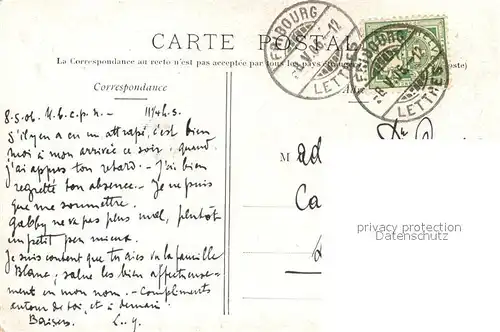 CARTE POSTALE
La Correspondance au recto n'est pas acceptée par tous les pays
poste)
Correspondance
FRIBOURG
LETTRES
FRIBOURG
LETTRES
8-5.06. 11¼ h.s.
S'il y en a eu un attrapé, c'est bien
moi à mon arrivée ce soir, quand
j'ai appris ton retard. - J'ai bien
regretté ton absence. - Je ne puis
que me soumettre.
Gabby ne va pas plus mal, plutôt
un petit peu mieux.
Je suis content que tu aies vu la famille
Blanc; salue les bien affectueuse-
ment en mon nom. - Compliments
autour de toi, et à demain.
Baisers. L..y.
M ad
Ca
privacy protection
Datenschutz